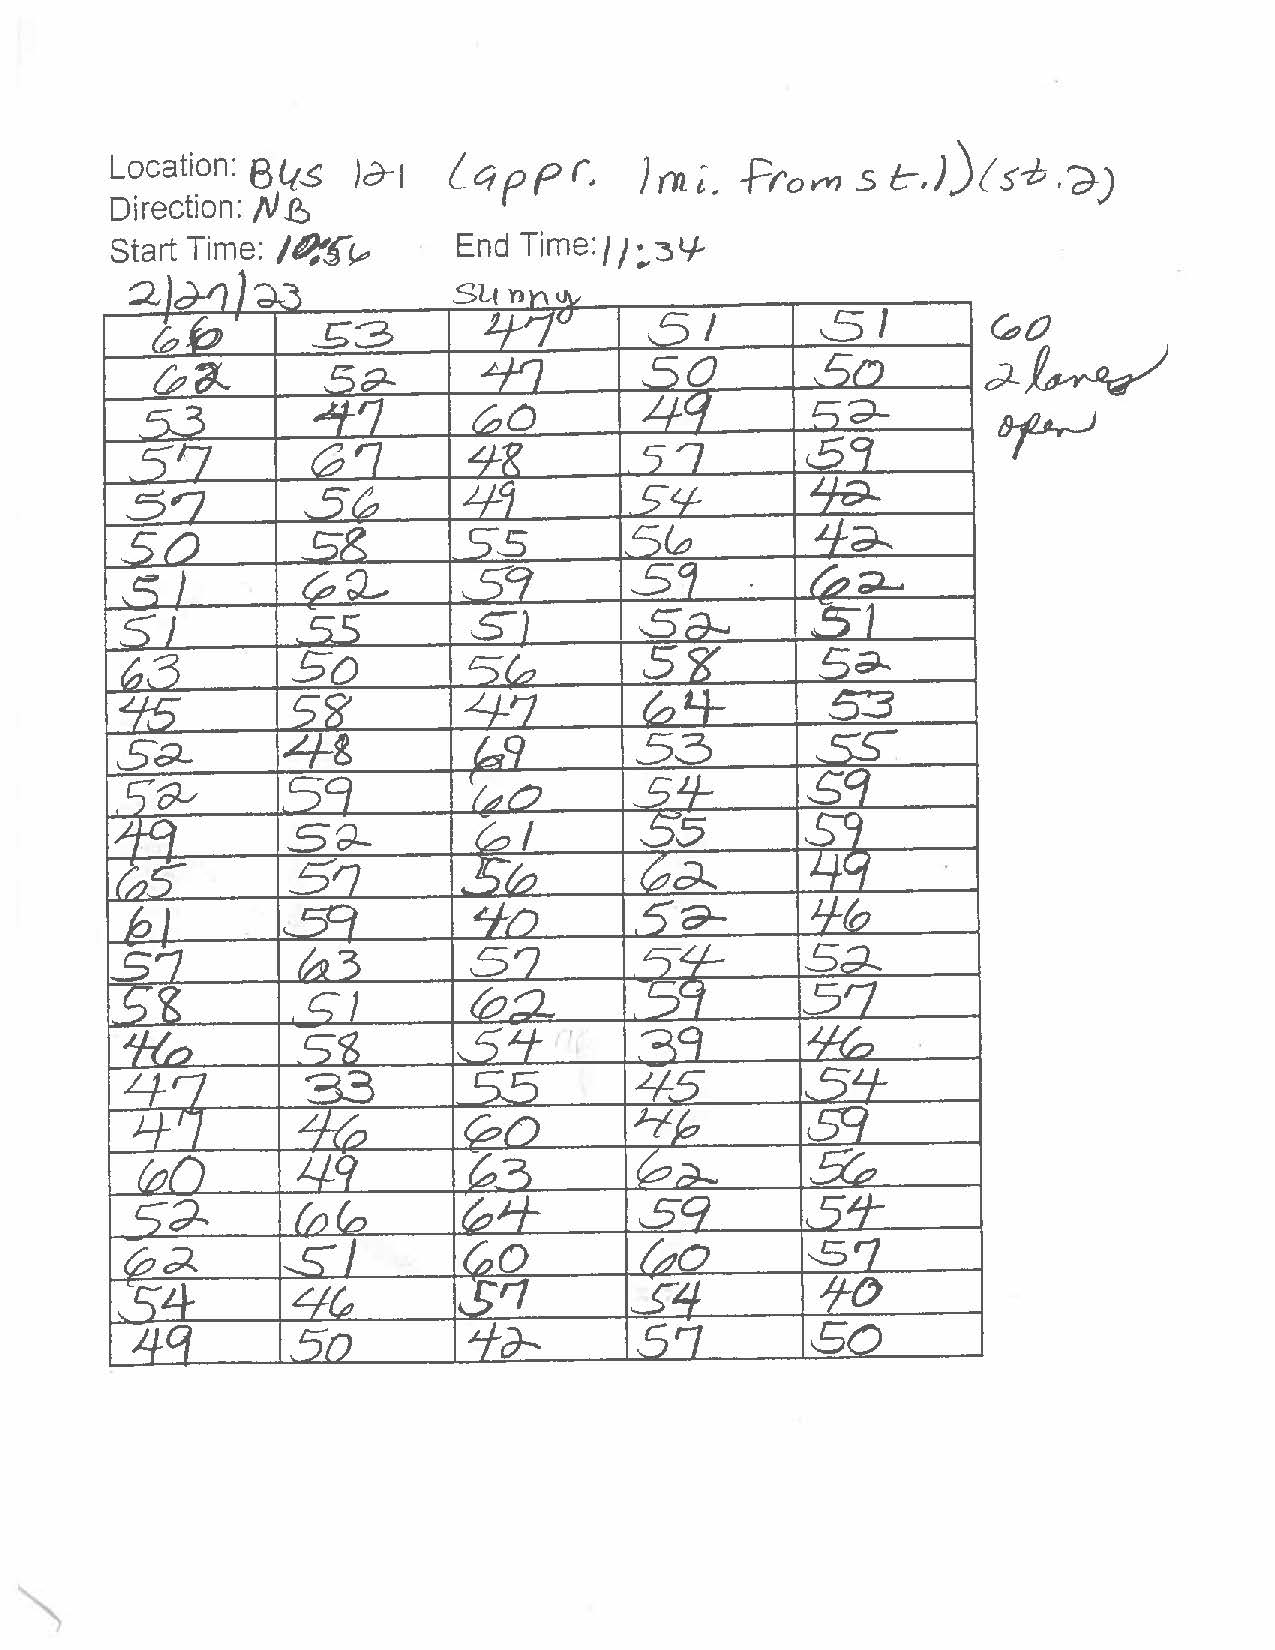 Location: Bus 121 (appr. 1mi. from st.1) (st.2)
Direction: NB
Start Time: 10:56 End Time: 11:34
2/27/23 Sunny
66 53 47 51 51 60
62 52 47 50 50 2 lanes
53 47 60 49 52 open
57 67 48 57 59
57 56 49 54 42
50 58 55 56 42
51 62 59 59 62
51 55 51 52 51
63 50 56 58 52
45 58 47 64 53
52 48 69 53 55
52 59 60 54 59
49 52 61 55 59
65 57 56 62 49
61 59 40 52 46
57 63 57 54 52
58 51 62 59 57
46 58 54 39 46
47 33 55 45 54
47 46 60 46 59
60 49 63 62 56
52 66 64 59 54
62 51 60 60 57
54 46 57 54 40
49 50 42 57 50